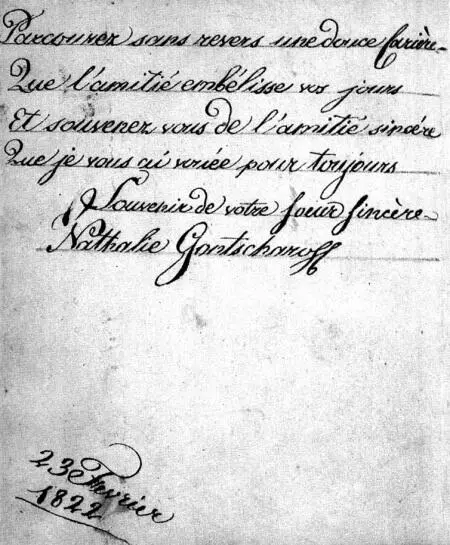 Parcourez sans revers une douce Carière
Que l'amitié embélisse vos jours
Et souvenez vous de l'amitié sincére
Que je vous ai vouée pour toujours
Souvenir de votre soeur sincère
Nathalie Gontscharoff
23 Fevrier
1822